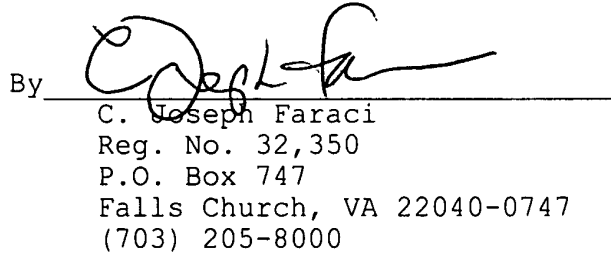 By C Joseph Fa
C. Joseph Faraci
Reg. No. 32,350
P.O. Box 747
Falls Church, VA 22040-0747
(703) 205-8000